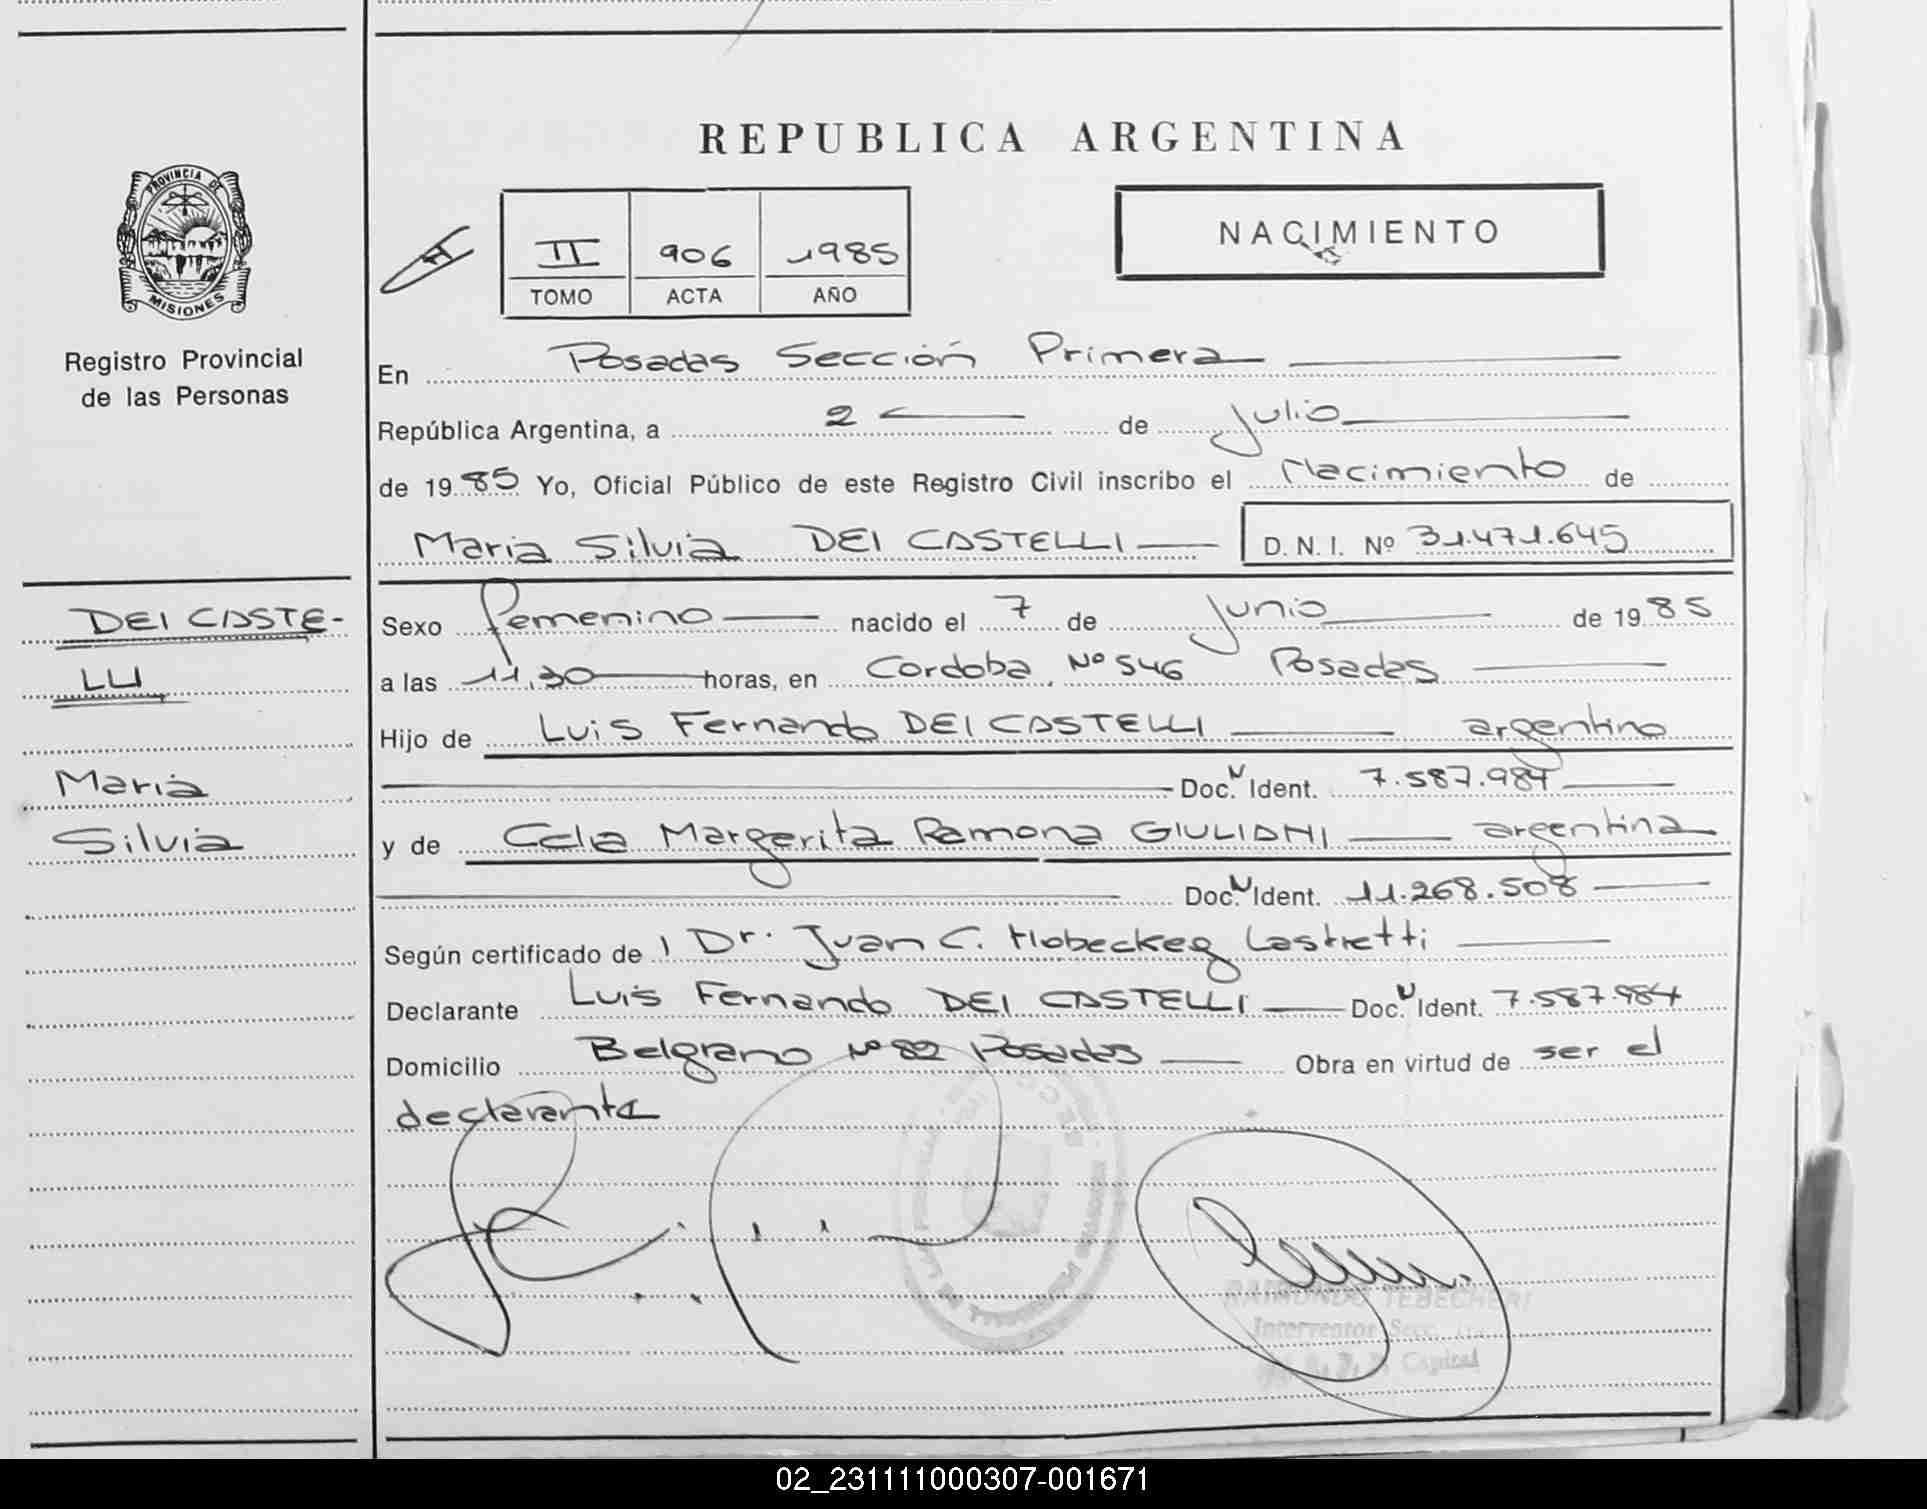 REPUBLICA ARGENTINA
PROVINCIA DE
MISIONES
Registro Provincial
de las Personas
II 906 1985
TOMO ACTA AÑO
NACIMIENTO
En Posadas Sección Primera
República Argentina, a 2 de Julio
de 1985 Yo, Oficial Público de este Registro Civil inscribo el Nacimiento de
Maria Silvia DEI CASTELLI D.N.I. Nº 31.471.645
DEI CASTE-
LLI
Maria
Silvia
Sexo femenino nacido el 7 de Junio de 1985
a las 11,30 horas, en Cordoba Nº 546 Posadas
Hijo de Luis Fernando DEI CASTELLI argentino
Doc. Ident. 7.587.984
y de Celia Margarita Ramona GIULIANI argentina
Doc. Ident. 11.268.508
Según certificado de Dr. Juan C.
Declarante Luis Fernando DEI CASTELLI Doc. Ident. 7.587.984
Domicilio Belgrano Nº 82 Posadas Obra en virtud de ser el
declarante
RAIMUNDO TEBECHERI
Interventor Secc.
Capital
02_231111000307-001671